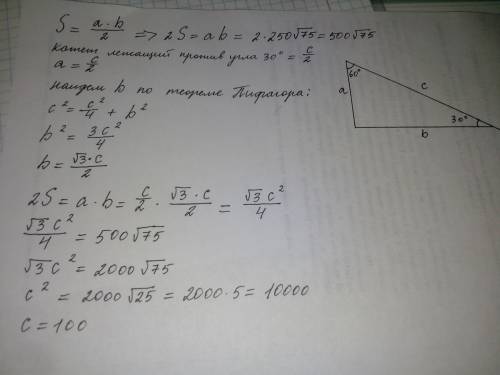 S = a·b/2 => 2S = ab = 2·250√75 = 500√75
Катет лежащий против угла 30° = c/2
a = c/2
Найдем b по теореме Пифагора:
c² = c²/4 + b²
b² = 3c²/4
b = √3·c/2
2S = a·b = c/2 · √3·c/2 = √3c²/4
√3c²/4 = 500√75
√3c² = 2000√75
c² = 2000√25 = 2000·5 = 10000
c = 100
60°
a
c
30°
b